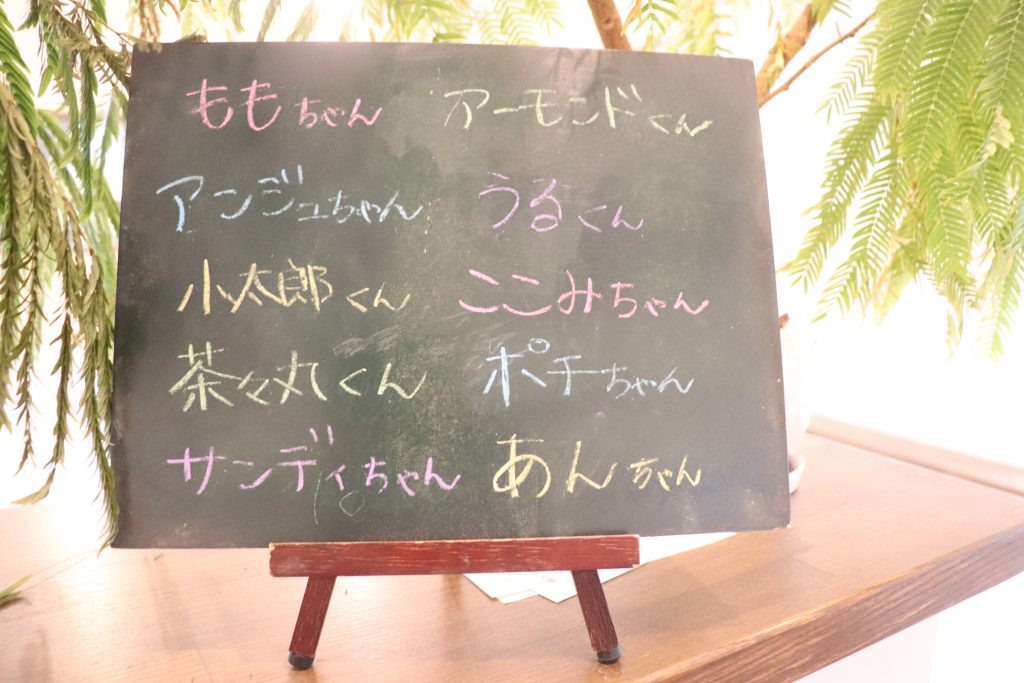 ももちゃん アーモンドくん
アンジュちゃん うるくん
小太郎くん ここみちゃん
茶々丸くん ポチちゃん
サンディちゃん あんちゃん